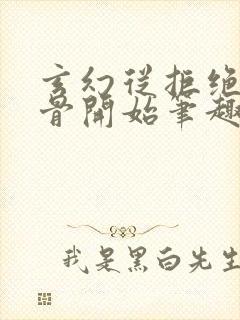 玄幻從拒绝
骨開始筆趣
我是黑白先生